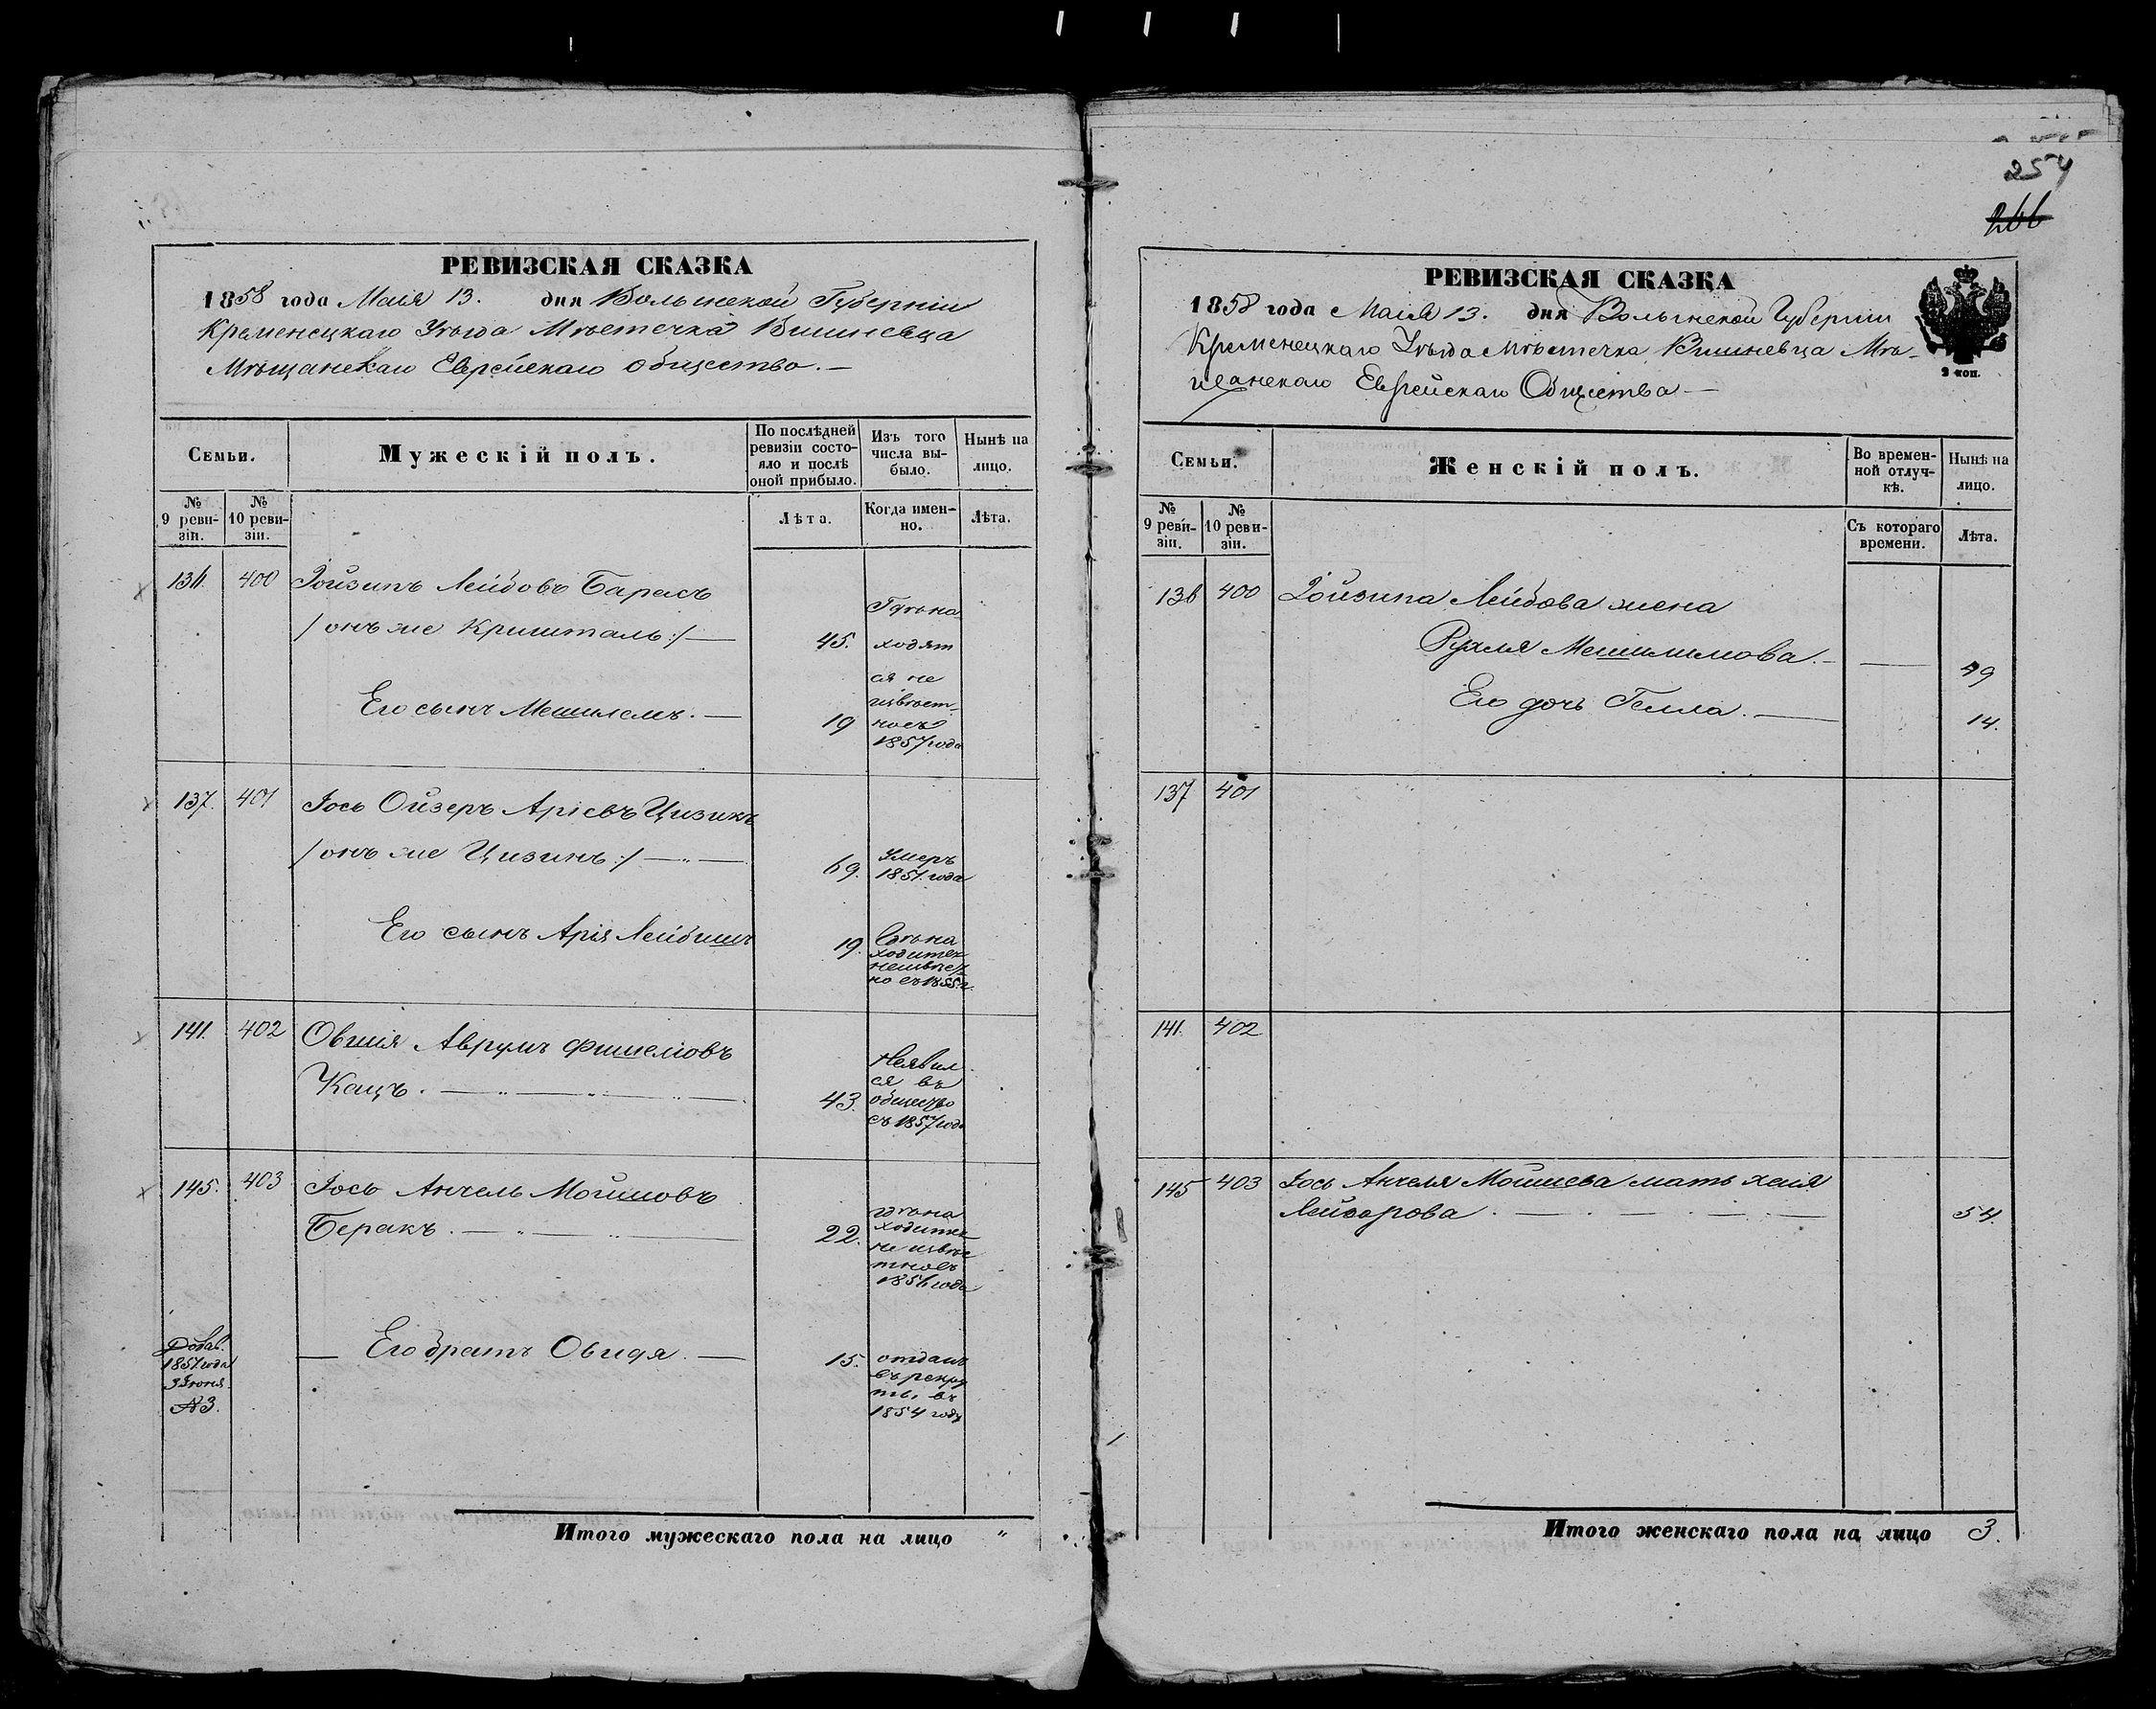 254
266
РЕВИЗСКАЯ СКАЗКА
1858 года Маія 13. дня Волынской Губерніи
Кременецкаго Уѣзда Мѣстечка Вишневца
Мѣщанскаго Еврейскаго общества.—
Семьи.
Мужескій полъ.
По послѣдней ревизіи состояло и послѣ оной прибыло.
Изъ того числа выбыло.
Нынѣ на лицо.
№ 9 ревизіи.
№ 10 ревизіи.
Лѣта.
Когда именно.
Лѣта.
136. 400 Ройзинъ Лейбовъ Барасъ
/онъ же Кришталь:/— 45.
Гдѣ на
ходят
ся не
извѣст-
но съ
1857 года
Его сынъ Мешилемъ.— 19
137. 401 Іось Ойзеръ Аріевъ Цизикъ
/онъ же Цизинъ:/— 69.
Умеръ
1851 года
Его сынъ Арія Лейбишъ 19.
Гдѣ на
ходится
неизвѣст
но съ 1855 г.
141. 402 Овшія Аврумъ Фишелювъ
Кацъ.— 43.
Неявил
ся въ
общество
съ 1857 года
145. 403 Іось Анчель Мошковъ
Беракъ.— 22.
гдѣ на
ходится
не извѣс
тно съ
1856 года
Добав.
1851 года
3 Іюня
№3.
— Его братъ Овидя.— 15.
отданъ
въ рекру
ты, въ
1854 году
Итого мужескаго пола на лицо "
РЕВИЗСКАЯ СКАЗКА
1858 года Маія 13. дня Волынской Губерніи
Кременецкаго Уѣзда Мѣстечка Вишневца Мѣ-
щанскаго Еврейскаго Общества—
2 коп.
Семьи.
Женскій полъ.
Во временной отлучкѣ.
Нынѣ на лицо.
№ 9 ревизіи.
№ 10 ревизіи.
Съ котораго времени.
Лѣта.
136 400 Ройзина Лейбова жена
Рухля Мешилимова.— 49
Его дочь Гелла.— 14.
137 401
141. 402
145 403 Іось Анчеля Мошкова мать хая
Лейзорова.— 54.
Итого женскаго пола на лицо 3.